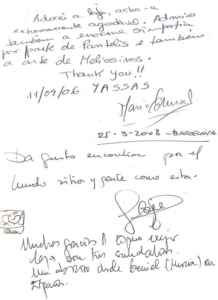 Adorei a loja, achei-a
extremamente agradável. Admiro
também a enorme simpatia
por parte de Pantelis e também
a arte de Melissinos.
Thank you!!
11/09/06 YASSAS
25-9-2008 - BARCELONA
Da gusto encontrar por el
mundo sitios y gente como estos.
Muchas gracias
loja, son tus sandalias.
Un abrazo desde Beniel (Murcia) en
España.